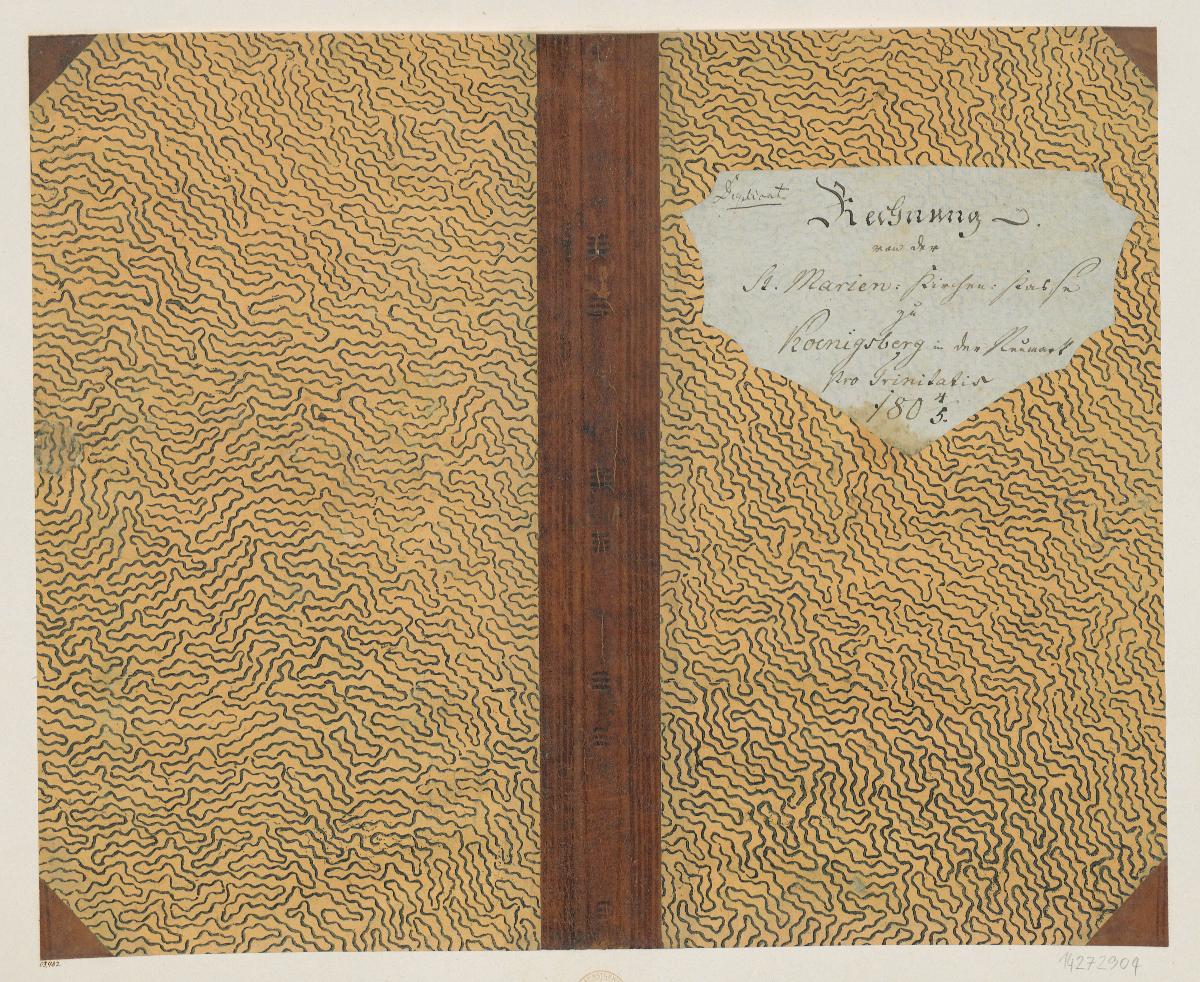 Duplicat
Rechnung.
von der
St. Marien: Kirchen: Kasse
zu
Koenigsberg in der Neumark
pro Trinitatis
180 4/5.
14272904